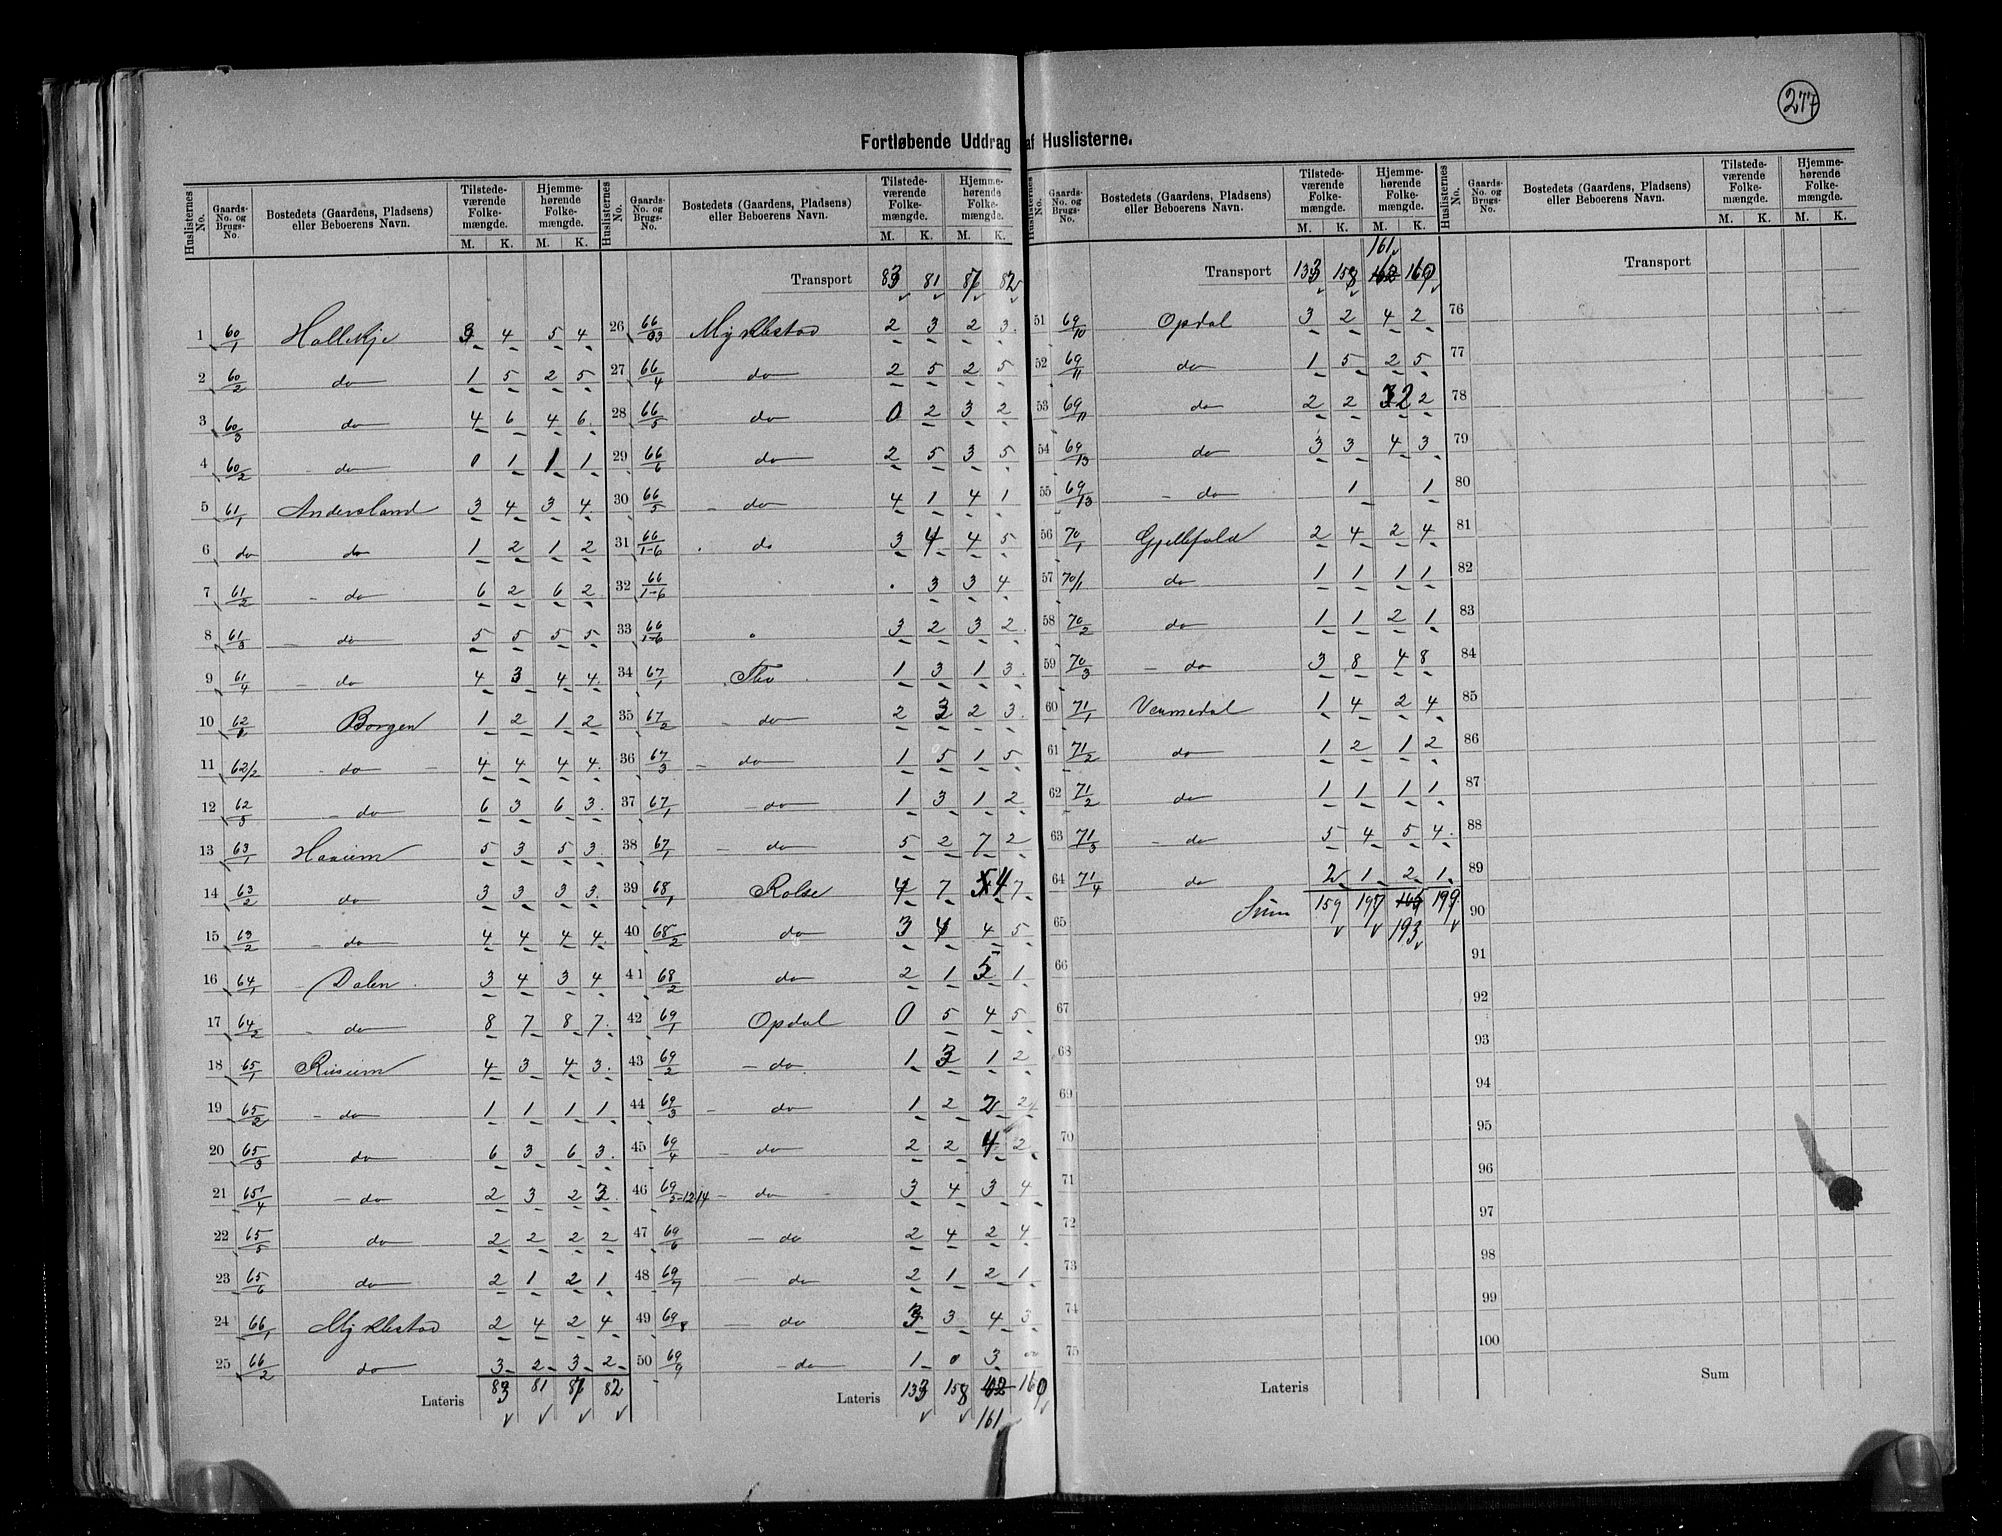 277
Fortløbende Uddrag af Huslisterne.
Huslisternes No. Gaards-No. og Brugs-No. Bostedets (Gaardens, Pladsens) eller Beboerens Navn. Tilstedeværende Folkemængde. M. K. Hjemmehørende Folkemængde. M. K.
1 60/1 Hallekje 3 4 5 4
2 60/2 do 1 5 2 5
3 60/3 do 4 6 4 6
4 60/2 do 0 1 1 1
5 61/1 Andersland 3 4 3 4
6 do do 1 2 1 2
7 61/2 do 6 2 6 2
8 61/3 do 5 5 5 5
9 61/4 do 4 3 4 4
10 62/1 Borgen 1 2 1 2
11 62/2 do 4 4 4 4
12 62/3 do 6 3 6 3
13 63/1 Haaium 5 3 5 3
14 63/2 do 3 3 3 3
15 63/2 do 4 4 4 4
16 64/1 Dalen 3 4 3 4
17 64/2 do 8 7 8 7
18 65/1 Riisium 4 3 4 3
19 65/2 do 1 1 1 1
20 65/3 do 6 3 6 3
21 65/4 do 2 3 2 3
22 65/5 do 2 2 2 2
23 65/6 do 2 1 2 1
24 66/1 Myklestad 2 4 2 4
25 66/2 do 3 2 3 2
Lateris 83 81 87 82
Huslisternes No. Gaards-No. og Brugs-No. Bostedets (Gaardens, Pladsens) eller Beboerens Navn. Tilstedeværende Folkemængde. M. K. Hjemmehørende Folkemængde. M. K.
Transport 83 81 87 82
26 66/3 Myklestad 2 3 2 3
27 66/4 do 2 5 2 5
28 66/5 do 0 2 3 2
29 66/6 do 2 5 3 5
30 66/5 do 4 1 4 1
31 66/1-6 do 3 4 4 5
32 66/1-6 3 3 4
33 66/1-6 3 2 3 2
34 67/1 Tho 1 3 1 3
35 67/2 do 2 3 2 3
36 67/3 do 1 5 1 5
37 67/1 do 1 3 1 2
38 67/1 do 5 2 7 2
39 68/1 Rolse 4 7 4 7
40 68/2 do 3 4 4 5
41 68/2 do 2 1 5 1
42 69/1 Opdal 0 5 4 5
43 69/2 do 1 3 1 2
44 69/3 do 1 2 2 2
45 69/4 do 2 2 4 2
46 69/5-12 14 do 3 4 3 4
47 69/6 do 2 4 2 4
48 69/7 do 2 1 2 1
49 69/8 do 3 3 4 3
50 69/9 do 1 0 3
Lateris 133 158 162 160
161
Huslisternes No. Gaards-No. og Brugs-No. Bostedets (Gaardens, Pladsens) eller Beboerens Navn. Tilstedeværende Folkemængde. M. K. Hjemmehørende Folkemængde. M. K.
161
Transport 133 158 162 160
51 69/10 Opdal 3 2 4 2
52 69/11 do 1 5 2 5
53 69/11 do 2 2 3 2 2
54 69/13 do 3 3 4 3
55 69/13 do 1 1
56 70/1 Gjellefald 2 4 2 4
57 70/1 do 1 1 1 1
58 70/2 do 1 1 2 1
59 70/3 do 3 8 4 8
60 71/1 Venmedal 1 4 2 4
61 71/2 do 1 2 1 2
62 71/2 do 1 1 1 1
63 71/3 do 5 4 5 4
64 71/4 do 2 1 2 1
65 Sum 159 197 199
193
66
67
68
69
70
71
72
73
74
75
Lateris
Huslisternes No. Gaards-No. og Brugs-No. Bostedets (Gaardens, Pladsens) eller Beboerens Navn. Tilstedeværende Folkemængde. M. K. Hjemmehørende Folkemængde. M. K.
Transport
76
77
78
79
80
81
82
83
84
85
86
87
88
89
90
91
92
93
94
95
96
97
98
99
100
Sum